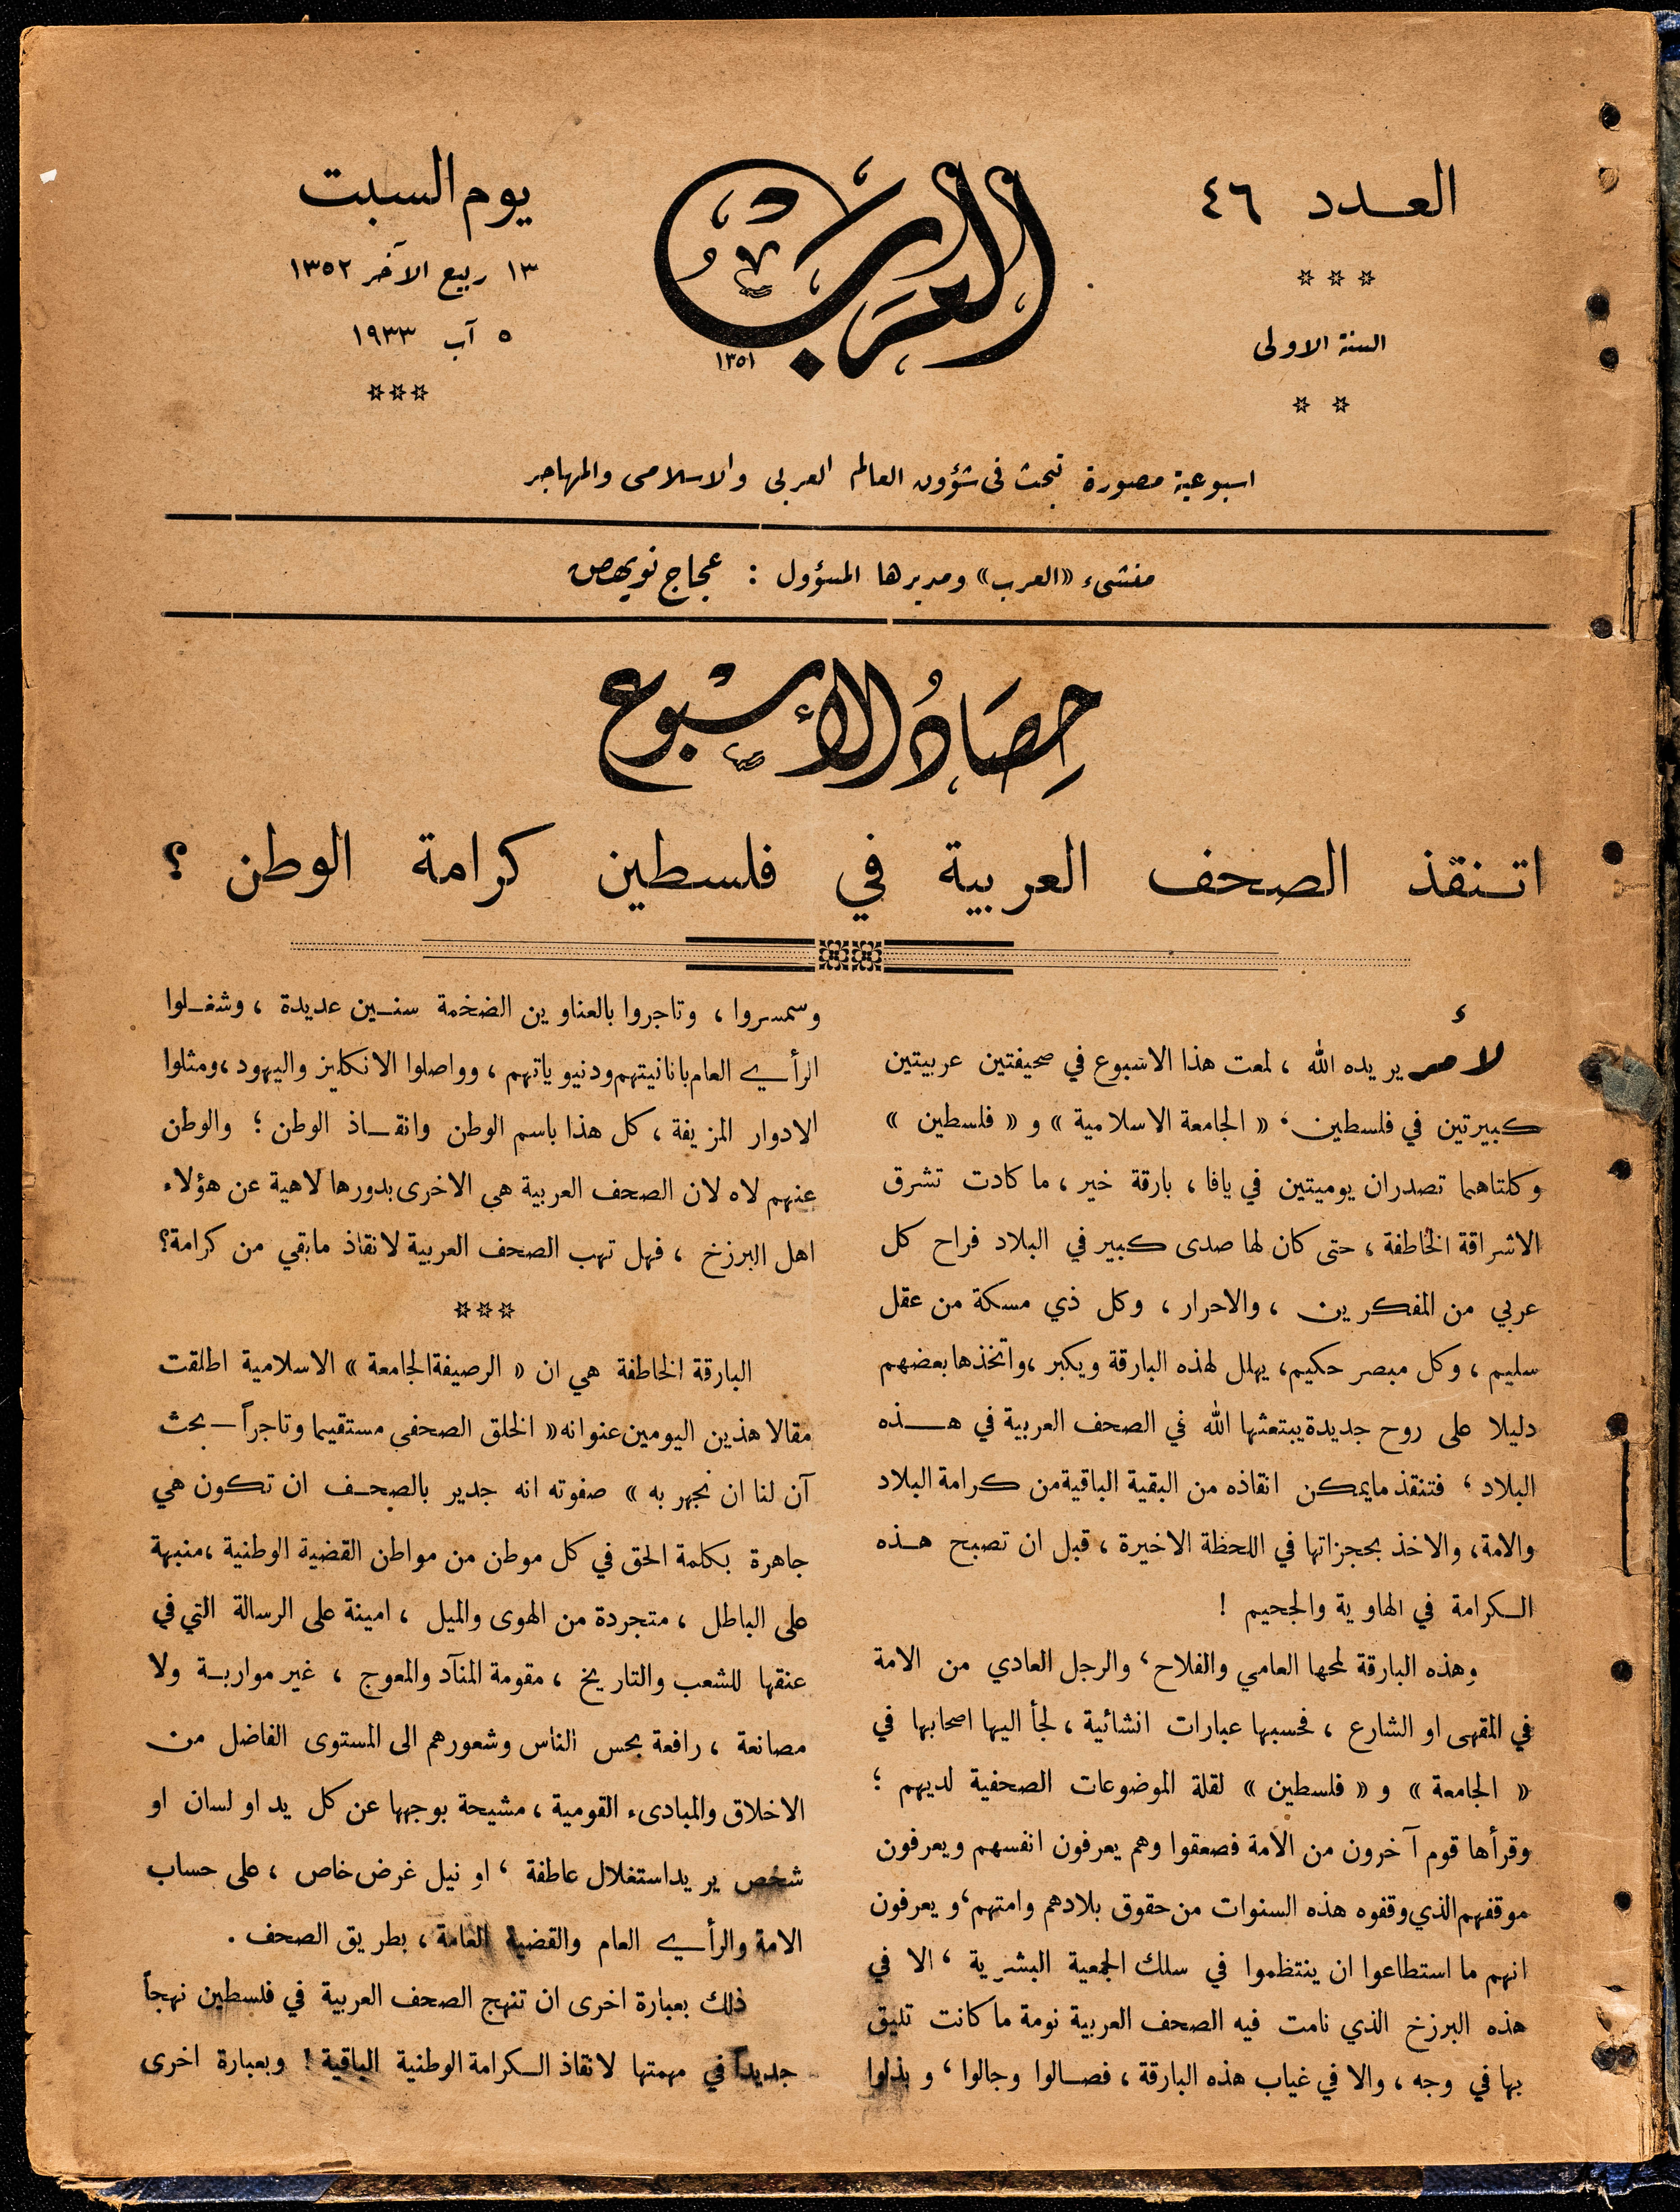 العدد ٤٦
السنة الاولى
العرب
١٣٥١
يوم السبت
١٣ ربيع الآخر ١٣٥٢
٥ آب ١٩٣٣
اسبوعية مصورة تبحث فى شؤون العالم العربى والاسلامى والمهاجر
منشىء «العرب» ومديرها المسؤول : عجاج نويهض
حِصَادُ الأسْبوع
اتنقذ الصحف العربية في فلسطين كرامة الوطن ؟
لامر يريده الله ، لمعت هذا الاسبوع في صحيفتين عربيتين
كبيرتين في فلسطين، « الجامعة الاسلامية » و « فلسطين »
وكلتاهما تصدران يوميتين في يافا ، بارقة خير ، ما كادت تشرق
الاشراقة الخاطفة ، حتى كان لها صدى كبير في البلاد فراح كل
عربي من المفكرين ، والاحرار ، وكل ذي مسكة من عقل
سليم ، وكل مبصر حكيم، يهلل لهذه البارقة ويكبر ،واتخذها بعضهم
دليلا على روح جديدة يبتعثها الله في الصحف العربية في هذه
البلاد ، فتنقذ مايمكن انقاذه من البقية الباقية من كرامة البلاد
والامة، والاخذ بحجزاتها في اللحظة الاخيرة ، قبل ان تصبح هذه
الكرامة في الهاوية والجحيم !
وهذه البارقة لمحها العامي والفلاح، والرجل العادي من الامة
في المقهى او الشارع ، فحسبها عبارات انشائية ، لجأ اليها اصحابها في
« الجامعة » و « فلسطين » لقلة الموضوعات الصحفية لديهم ؛
وقرأها قوم آخرون من الامة فصعقوا وهم يعرفون انفسهم ويعرفون
موقفهم الذي وقفوه هذه السنوات من حقوق بلادهم وامتهم، ويعرفون
انهم ما استطاعوا ان ينتظموا في سلك الجمعية البشرية ، الا في
هذه البرزخ الذي نامت فيه الصحف العربية نومة ما كانت تليق
بها في وجه ، والا في غياب هذه البارقة ، فصالوا وجالوا ، و بذلوا
وسمسروا ، وتاجروا بالعناوين الضخمة سنين عديدة ، وشغلوا
الرأي العام بانانيتهم ودنيوياتهم ، وواصلوا الانكليز واليهود ،ومثلوا
الادوار المزيفة ، كل هذا باسم الوطن وانقاذ الوطن ؛ والوطن
عنهم لاه لان الصحف العربية هي الاخرى بدورها لاهية عن هؤلاء
اهل البرزخ ، فهل تهب الصحف العربية لانقاذ مابقي من كرامة؟
البارقة الخاطفة هي ان « الرصيفة الجامعة » الاسلامية اطلقت
مقالا هذين اليومين عنوانه « الخلق الصحفي مستقيما وتاجراً — بحث
آن لنا ان نجهر به » صفوته انه جدير بالصحف ان تكون هي
جاهرة بكلمة الحق في كل موطن من مواطن القضية الوطنية ،منبهة
على الباطل ، متجردة من الهوى والميل ، امينة على الرسالة التي في
عنقها للشعب والتاريخ ، مقومة المنآد والمعوج ، غير مواربة ولا
مصانعة ، رافعة بحس الناس وشعورهم الى المستوى الفاضل من
الاخلاق والمبادىء القومية ، مشيحة بوجهها عن كل يد او لسان او
شخص يريد استغلال عاطفة ، او نيل غرض خاص ، على حساب
الامة والرأي العام والقضية العامة ، بطريق الصحف .
ذلك بعبارة اخرى ان تنهج الصحف العربية في فلسطين نهجاً
جديداً في مهمتها لانقاذ الكرامة الوطنية الباقية ! وبعبارة اخرى